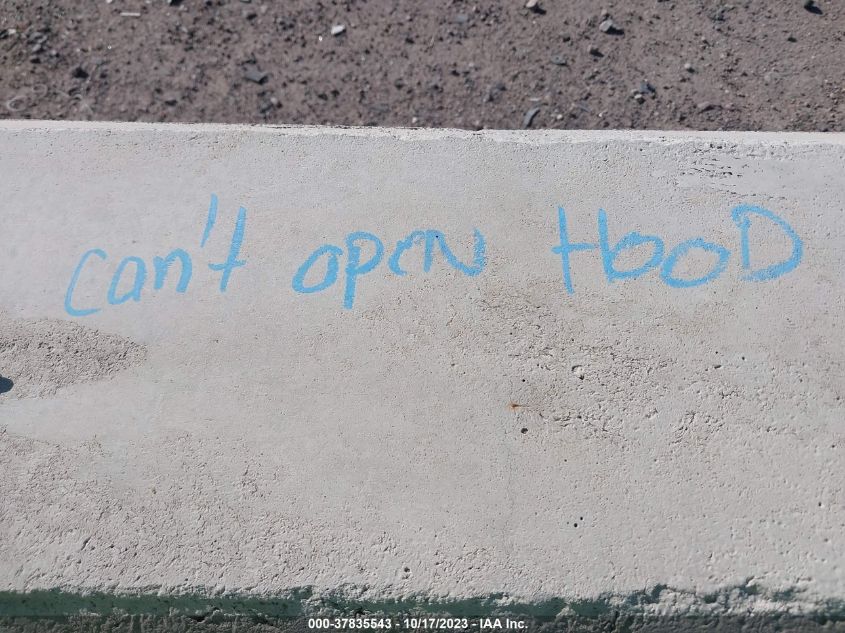 can't open HOOD
000-37835543 - 10/17/2023 - IAA Inc.